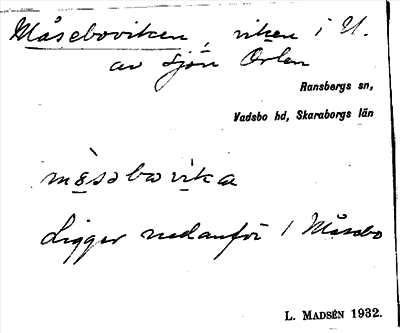 Måseboviken, viken i U.
av sjön Örlen
Ransbergs sn,
Vadsbo hd, Skaraborgs län
Ligger nedanför 1 Måsebo
L. MADSÉN 1932.